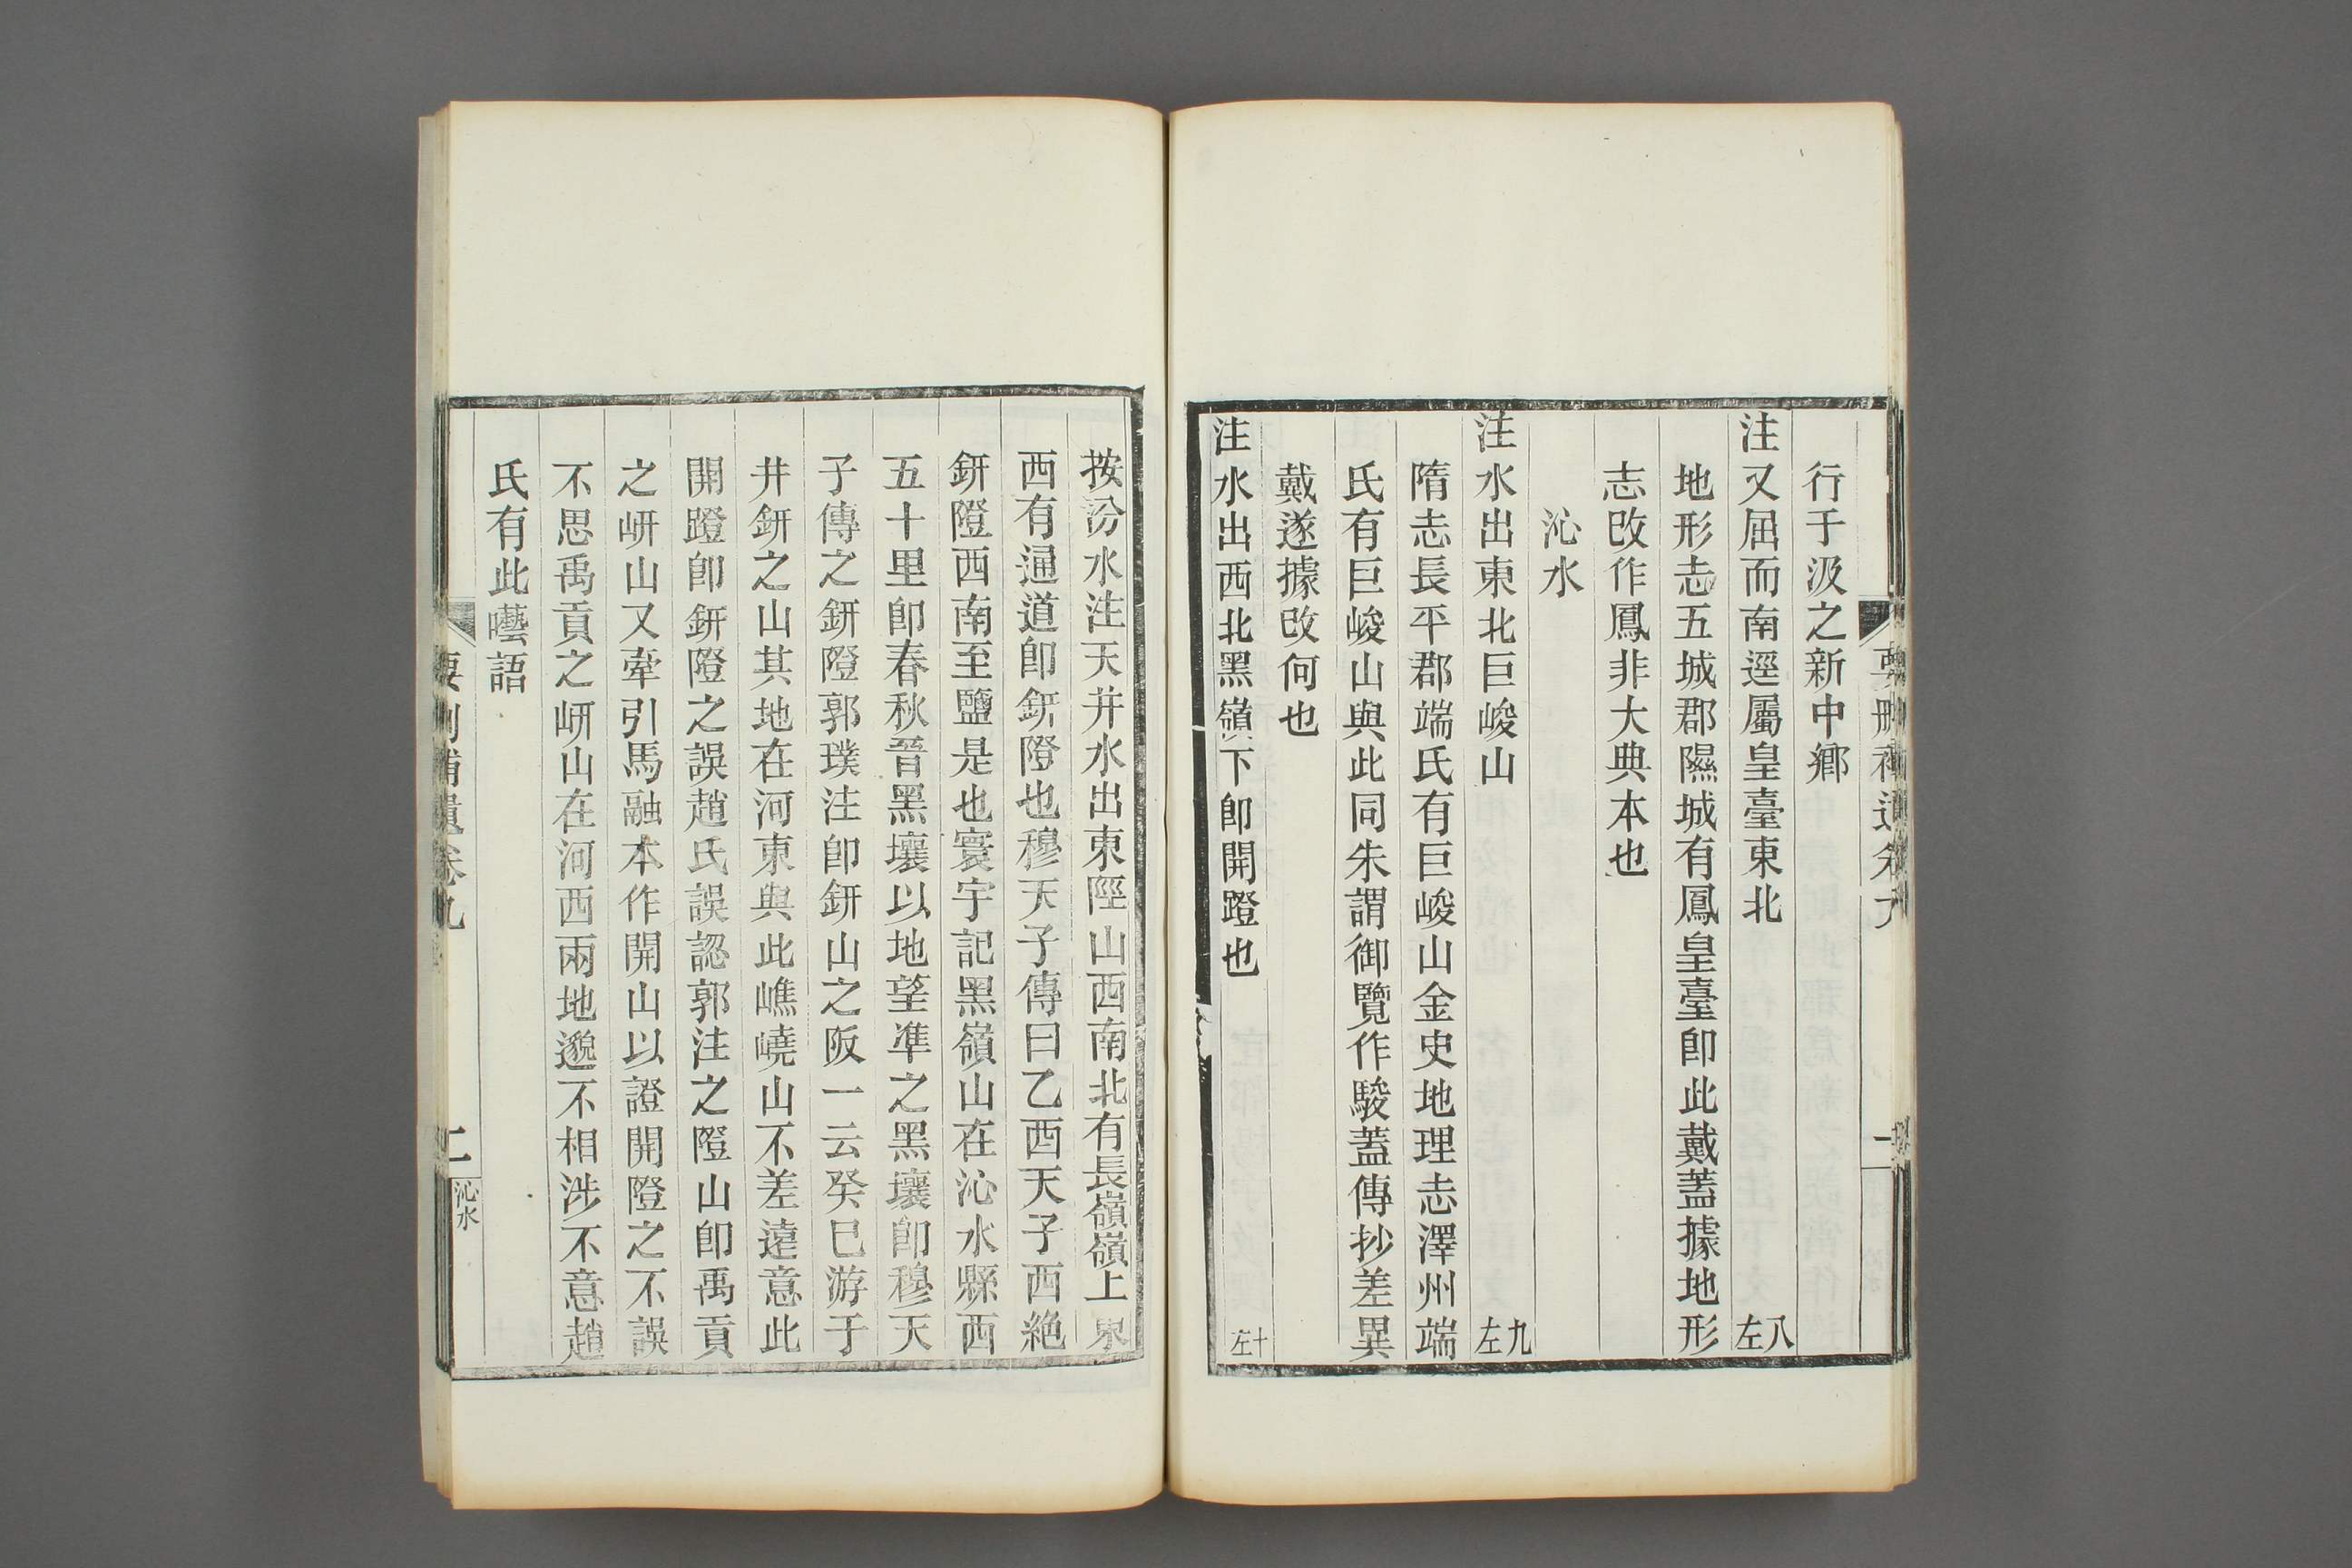 行于汲之新中鄉
注又屈而南逕屬皇臺東北 八左
地形志五城郡隰城有鳳皇臺卽此戴蓋據地形
志改作鳳非大典本也
沁水
注水出東北巨峻山 九左
隋志長平郡端氏有巨峻山金史地理志澤州端
氏有巨峻山與此同朱謂御覽作駿蓋傳抄差異
戴遂據改何也
注水出西北黑嶺下卽開蹬也 十左
按汾水注天井水出東陘山西南北有長嶺嶺上東
西有通道卽鈃隥也穆天子傳曰乙酉天子西絶
鈃隥西南至鹽是也寰宇記黑嶺山在沁水縣西
五十里卽春秋晉黑壤以地望凖之黑壤卽穆天
子傳之鈃隥郭璞注卽鈃山之阪一云癸巳游于
井鈃之山其地在河東與此嶕嶢山不差遠意此
開蹬卽鈃隥之誤趙氏誤認郭注之隥山卽禹貢
之岍山又牽引馬融本作開山以證開隥之不誤
不思禹貢之岍山在河西兩地邈不相涉不意趙
氏有此囈語
要刪補遺卷九
二
沁水